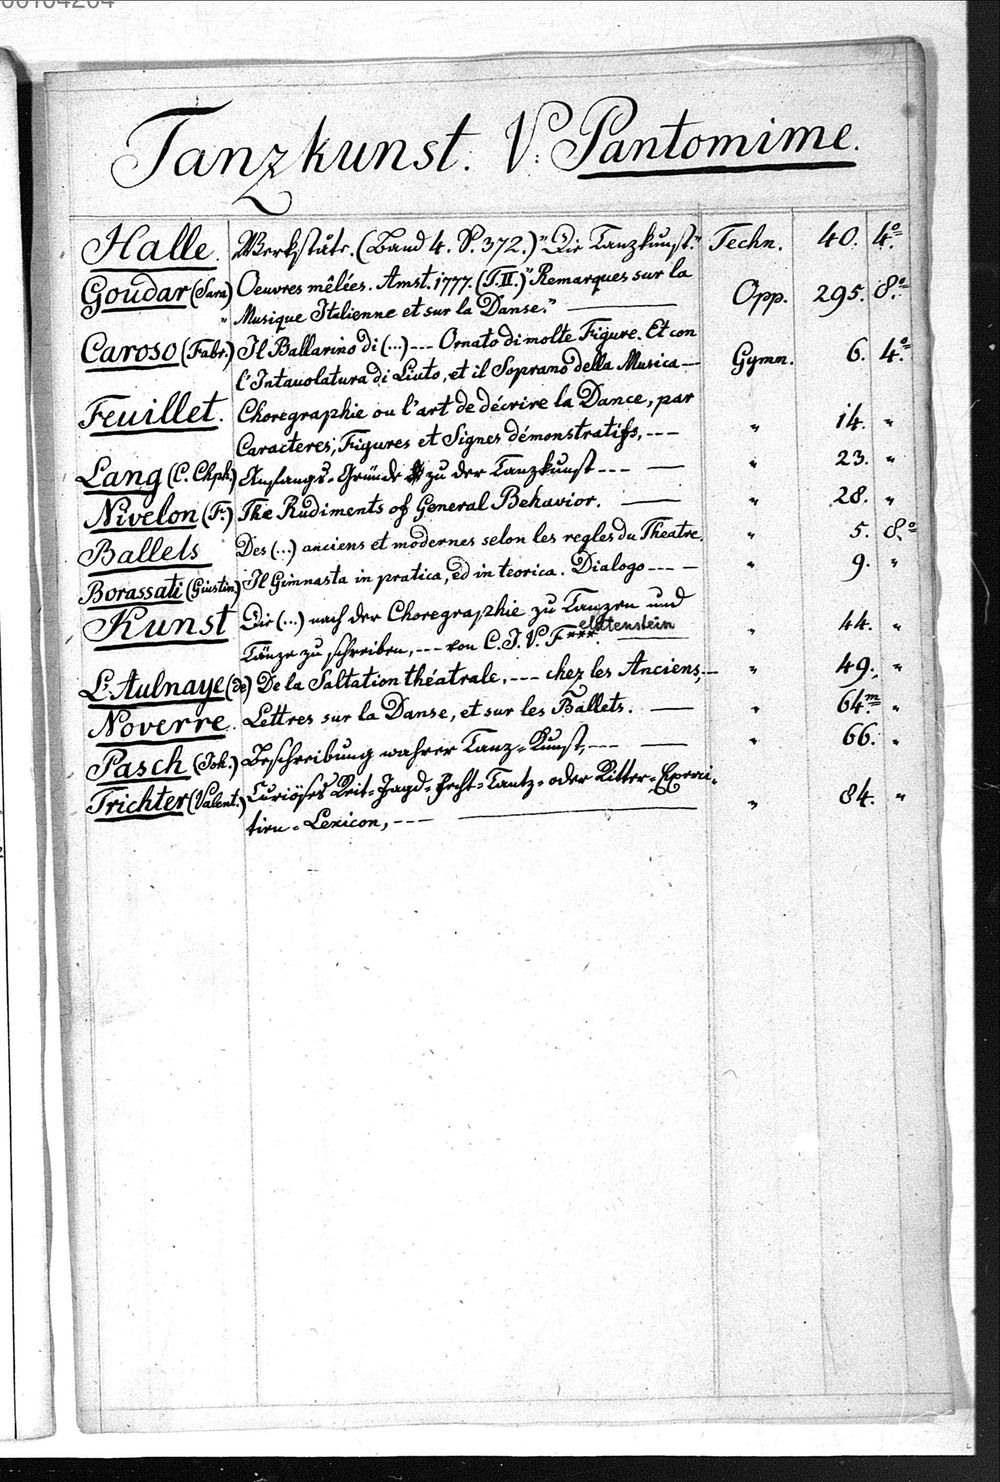 Tanzkunst. V. Pantomime.
Halle. Werkstäte. (Band 4. S. 372.) "Die Tanzkunst." Techn. 40. 4º.
Goudar (Sara) Oeuvres mêlées. Amst. 1777. (T. II.) "Remarques sur la
" Musique Italienne et sur la Danse." — Opp. 295. 8º.
Caroso (Fabr.) Il Ballarino di (...) --- Ornato di molte Figure. Et con
l'Intauolatura di Liuto, et il Soprano della Musica — Gymn. 6. 4º.
Feuillet. Choregraphie ou l'art de décrire la Dance, par
Caracteres, Figures et Signes démonstratifs, --- " 14. "
Lang (C. Chph.) Anfangs-Gründe zu der Tanzkunst --- — " 23. "
Nivelon (F.) The Rudiments of General Behavior. — " 28. "
Ballets Des (...) anciens et modernes selon les regles du Theatre. " 5. 8º.
Borassati (Giustin.) Il Gimnasta in pratica, ed in teorica. Dialogo --- — " 9. "
Kunst Die (...) nach der Choregraphie zu Tanzen und
Tänze zu schreiben, --- von C. J. V. F***. " 44. "
L'Aulnaye (de) De la Saltation théatrale, --- chez les Anciens, — " 49. "
Noverre. Lettres sur la Danse, et sur les Ballets. — " 64.m "
Pasch (Joh.) Beschreibung wahrer Tanz-Kunst, --- — " 66. "
Trichter (Valent.) Curiöses Reit-Jagd-Fecht-Tantz-oder Ritter-Exerci-
tien-Lexicon, --- — " 84. "